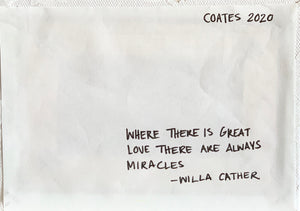 COATES 2020
WHERE THERE IS GREAT
LOVE THERE ARE ALWAYS
MIRACLES
-WILLA CATHER